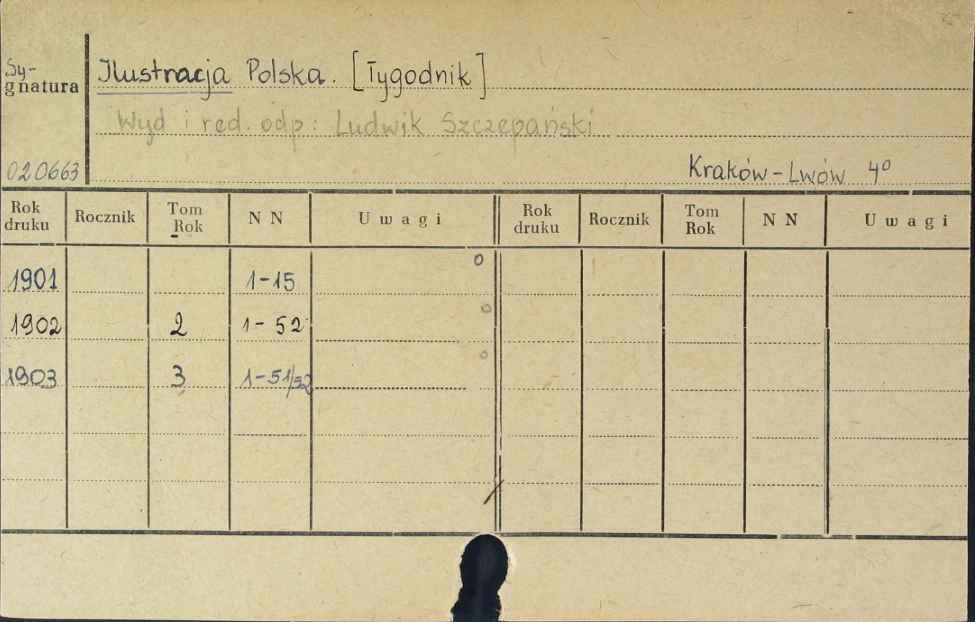 Sy-
gnatura
Ilustracja Polska. [Tygodnik]
Wyd i red. odp: Ludwik Szczepański
020663
Kraków-Lwów 4º
Rok druku Rocznik Tom Rok N N Uwagi Rok druku Rocznik Tom Rok N N Uwagi
1901 1-15
1902 2 1-52
1903 3 1-51/52